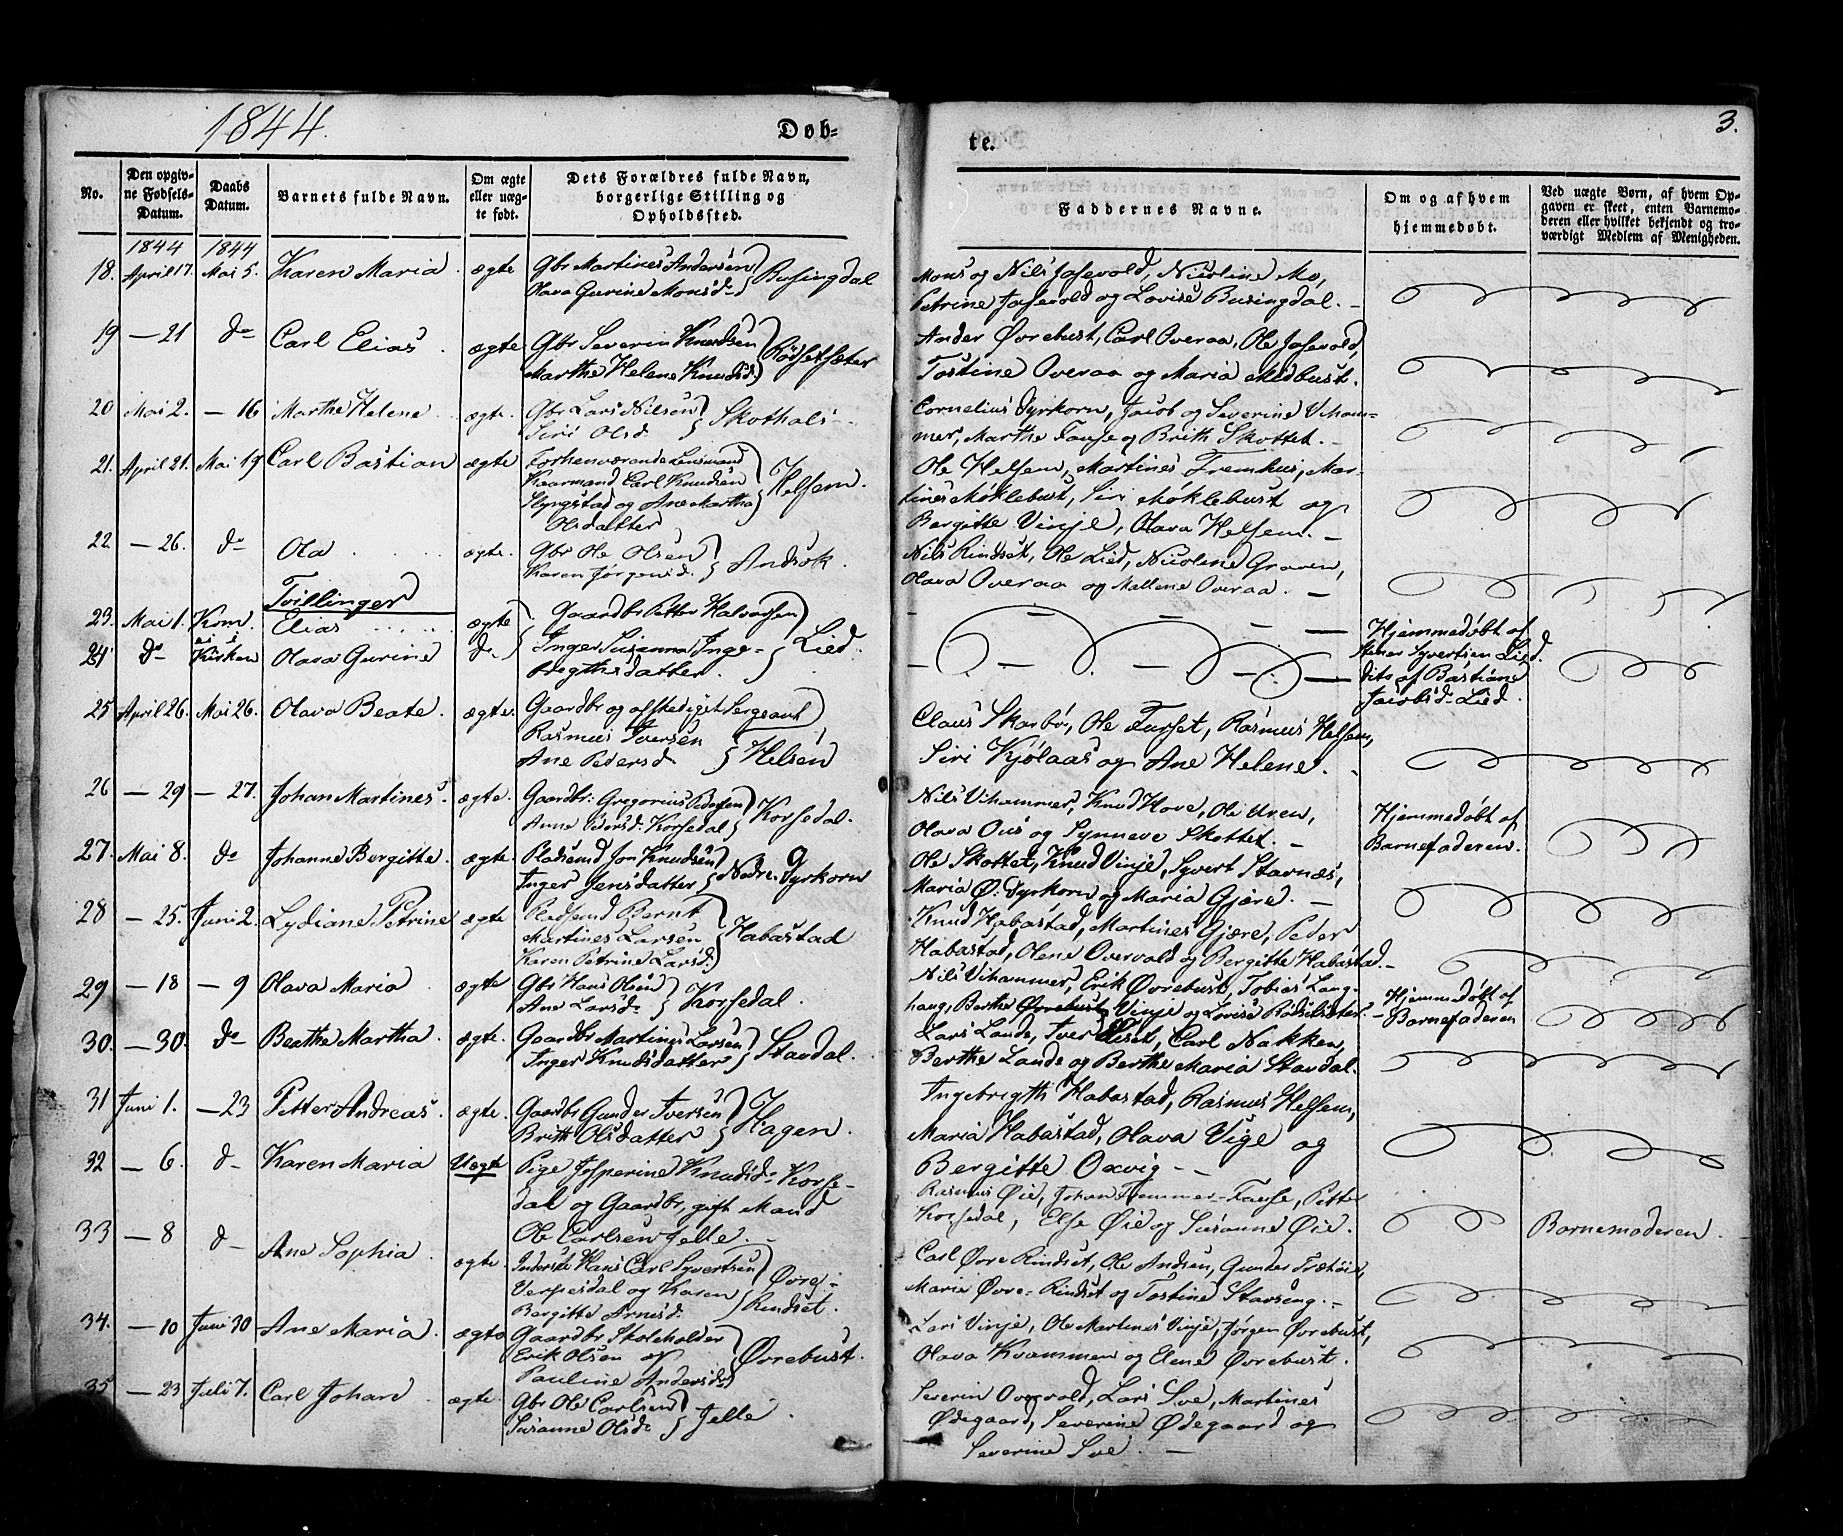 1844.
Døb-
te.
3.
No.
Den opgiv-
ne Fødsels-
Datum.
Daabs
Datum.
Barnets fulde Navn.
Om ægte
eller uæg-
te født.
Dets Forældres fulde Navn,
borgerlige Stilling og
Opholdssted.
Faddernes Navne.
Om og af hvem
hjemmedøbt.
Ved uægte Børn, af hvem Op-
gaven er skeet, enten Barnemo-
deren eller hvilket bekjendt og tro-
værdigt Medlem af Menigheden.
1844 1844
18. April 17. Mai 5. Karen Maria ægte Gbr Martines Andersen
Olava Gurine Monsd- } Busingdal
Mons og Nils Josevold, Nicoline Mo,
Petrine Josevold og Lovise Busingdal. -
19 - 21 do Carl Elias ægte Gbr Severin Knudsen
Marthe Helene Knudsd. } Rødsetsæter
Ander Øvrebust, Carl Overaa, Ole Josevold,
Tostine Overaa og Maria Midbust.
20 Mai 2. - 16 Marthe Helene ægte. Gbr Lars Nilsen
Siri Olsd. } Skothals
Cornelius Dyrkorn, Jacob og Severine Viham-
mer, Marthe Fause og Brith Skottet. -
21. April 21. Mai 19 Carl Bastian ægte Forhenværende Lensmand
Kaarmand Carl Knudsen
Slyngstad og Ane Martha
Olsdatter } Helsem.
Ole Helsem, Martines Fremhus, Mar-
tines Møklebust, Siri Møklebust og
Bergitte Vinje, Olava Helsem. -
22 - 26. do Ola ægte. Gbr Ole Olsen
Karen Jørgensd. } Andsok.
Nils Rindset, Ole Lied, Nicoline Graven,
Olava Overaa og Mallene Overaa. -
Tvillinger
23. Mai 1. Kom. Elias ægte Gaardbr Petter Halvorsen
24 do Kirken Olava Gurine d. Inger Susanna Inge-
brigthsdatter. } Lied.
Hjemmedøbt af
Syvertsen Lied.
dito af Bastiane
Jacobsd- Lied.
25 April 26. Mai 26. Olava Beate. ægte. Gaardbr og afskediget Sergeant
Rasmus Iversen
Ane Pedersd. } Helsen
Claus Skarbø, Ole Furset, Rasmus Helsem,
Siri Kjølaas og Ane Helene. -
26 - 29 - 27. Johan Martines. ægte. Gaardbr: Gregorius Pedersen
Anne Pedersd. Korsedal } Korsedal.
Nils Vihammer, Knud Hove, Ole Uren,
Olava Ous og Synneve Skottet. -
Hjemmedøbt af
Barnefaderen.
27. Mai 8. do Johanne Bergitte. ægte. Pladsmd Jon Knudsen
Inger Jensdatter } Nedre Dyrkorn
Ole Skottet, Knud Vinje, Syvert Stavnes,
Maria Ø: Dyrkorn og Maria Gjære. -
28 - 25. Juni 2. Lydiane Petrine ægte Pladsmd Bernt
Martines Larsen
Karen Petrine Larsd. } Habastad
Knud Habastad, Martines Gjære, Peder
Habastad, Olene Overvold og Bergitte Habastad. -
29 - 18 - 9 Olava Maria ægte Gbr Hans Olsen
Ane Larsd- } Korsedal.
Nils Vihammer, Erik Øvrebust, Tobias Lang-
haug, Berthe Øvrebust Vinje og Lovise Rødsetsæter.
Hjemmedøbt af
Barnefaderen
30. - 30. do Beathe Martha. ægte. Gaardbr Martines Larsen
Inger Knudsdatter } Stavdal.
Lars Lande, Iver Eliset, Carl Nakken,
Berthe Lande og Berthe Maria Stavdal.
31 Juni 1. - 23 Petter Andreas. ægte. Gaardbr Gunder Iversen
Brith Olsdatter } Hagen.
Ingebrigth Habastad, Rasmus Helsem,
Maria Habastad, Olava Vige og
Bergitte Oxvig - -
32 - 6. d- Karen Maria Uægte Pige Josperine Knudsd. Korse-
dal og Gaardbr, gift Mand
Ole Carlsen Jelle. -
Rasmus Øie, Johan Trommer-Fause, Petter
Korsedal, Else Øie og Susanne Øie.
Barnemoderen.
33 - 8 d- Ane Sophia ægte. Inderste Hans Carl Syvertsen
Verpesdal og Karen
Bergitte Arnesd. } Øvre-
Rindset.
Carl Øvre Rindset, Ole Andsen, Gunder Frætøie,
Maria Øvre-Rindset og Tostine Stavseng. -
34. - 10 Juni 30 Ane Maria. ægte Gaardbr Skoleholder
Erik Olsen og
Pauline Andersd. } Øvrebust.
Lars Vinje, Ole Martines Vinje, Jørgen Øvrebust,
Olava Kvammen og Elene Øvrebust.
35 - 23 Juli 7. Carl Johan ægte. Gbr Ole Carlsen
Susanne Olsd. } Jelle.
Severin Overvold, Lars Sve, Martines
Ødegaard, Severine Ødegaard og
Severine Sve. -